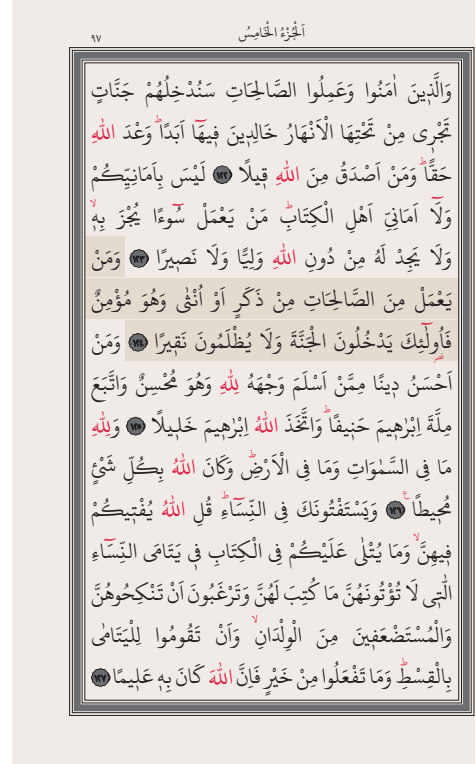 اَلْجُزْءُ الْخَامِسُ
٩٧
وَالَّذٖينَ اٰمَنُوا وَعَمِلُوا الصَّالِحَاتِ سَنُدْخِلُهُمْ جَنَّاتٍ
تَجْرٖى مِنْ تَحْتِهَا الْاَنْهَارُ خَالِدٖينَ فٖيهَٓا اَبَدًاؕ وَعْدَ اللّٰهِ
حَقًّاؕ وَمَنْ اَصْدَقُ مِنَ اللّٰهِ قٖيلًا ﴿١٢٢﴾ لَيْسَ بِاَمَانِيِّكُمْ
وَلَٓا اَمَانِىِّ اَهْلِ الْكِتَابِؕ مَنْ يَعْمَلْ سُٓوءًا يُجْزَ بِهٖۙ
وَلَا يَجِدْ لَهُ مِنْ دُونِ اللّٰهِ وَلِيًّا وَلَا نَصٖيرًا ﴿١٢٣﴾ وَمَنْ
يَعْمَلْ مِنَ الصَّالِحَاتِ مِنْ ذَكَرٍ اَوْ اُنْثٰى وَهُوَ مُؤْمِنٌ
فَاُولٰٓئِكَ يَدْخُلُونَ الْجَنَّةَ وَلَا يُظْلَمُونَ نَقٖيرًا ﴿١٢٤﴾ وَمَنْ
اَحْسَنُ دٖينًا مِمَّنْ اَسْلَمَ وَجْهَهُ لِلّٰهِ وَهُوَ مُحْسِنٌ وَاتَّبَعَ
مِلَّةَ اِبْرٰهٖيمَ حَنٖيفًاؕ وَاتَّخَذَ اللّٰهُ اِبْرٰهٖيمَ خَلٖيلًا ﴿١٢٥﴾ وَلِلّٰهِ
مَا فِى السَّمٰوَاتِ وَمَا فِى الْاَرْضِؕ وَكَانَ اللّٰهُ بِكُلِّ شَیْءٍ
مُحٖيطًاࣖ ﴿١٢٦﴾ وَيَسْتَفْتُونَكَ فِى النِّسَٓاءِؕ قُلِ اللّٰهُ يُفْتٖيكُمْ
فٖيهِنَّۙ وَمَا يُتْلٰى عَلَيْكُمْ فِى الْكِتَابِ فٖى يَتَامَى النِّسَٓاءِ
الّٰتٖى لَا تُؤْتُونَهُنَّ مَا كُتِبَ لَهُنَّ وَتَرْغَبُونَ اَنْ تَنْكِحُوهُنَّ
وَالْمُسْتَضْعَفٖينَ مِنَ الْوِلْدَانِۙ وَاَنْ تَقُومُوا لِلْيَتَامٰى
بِالْقِسْطِؕ وَمَا تَفْعَلُوا مِنْ خَيْرٍ فَاِنَّ اللّٰهَ كَانَ بِهٖ عَلٖيمًا ﴿١٢٧﴾